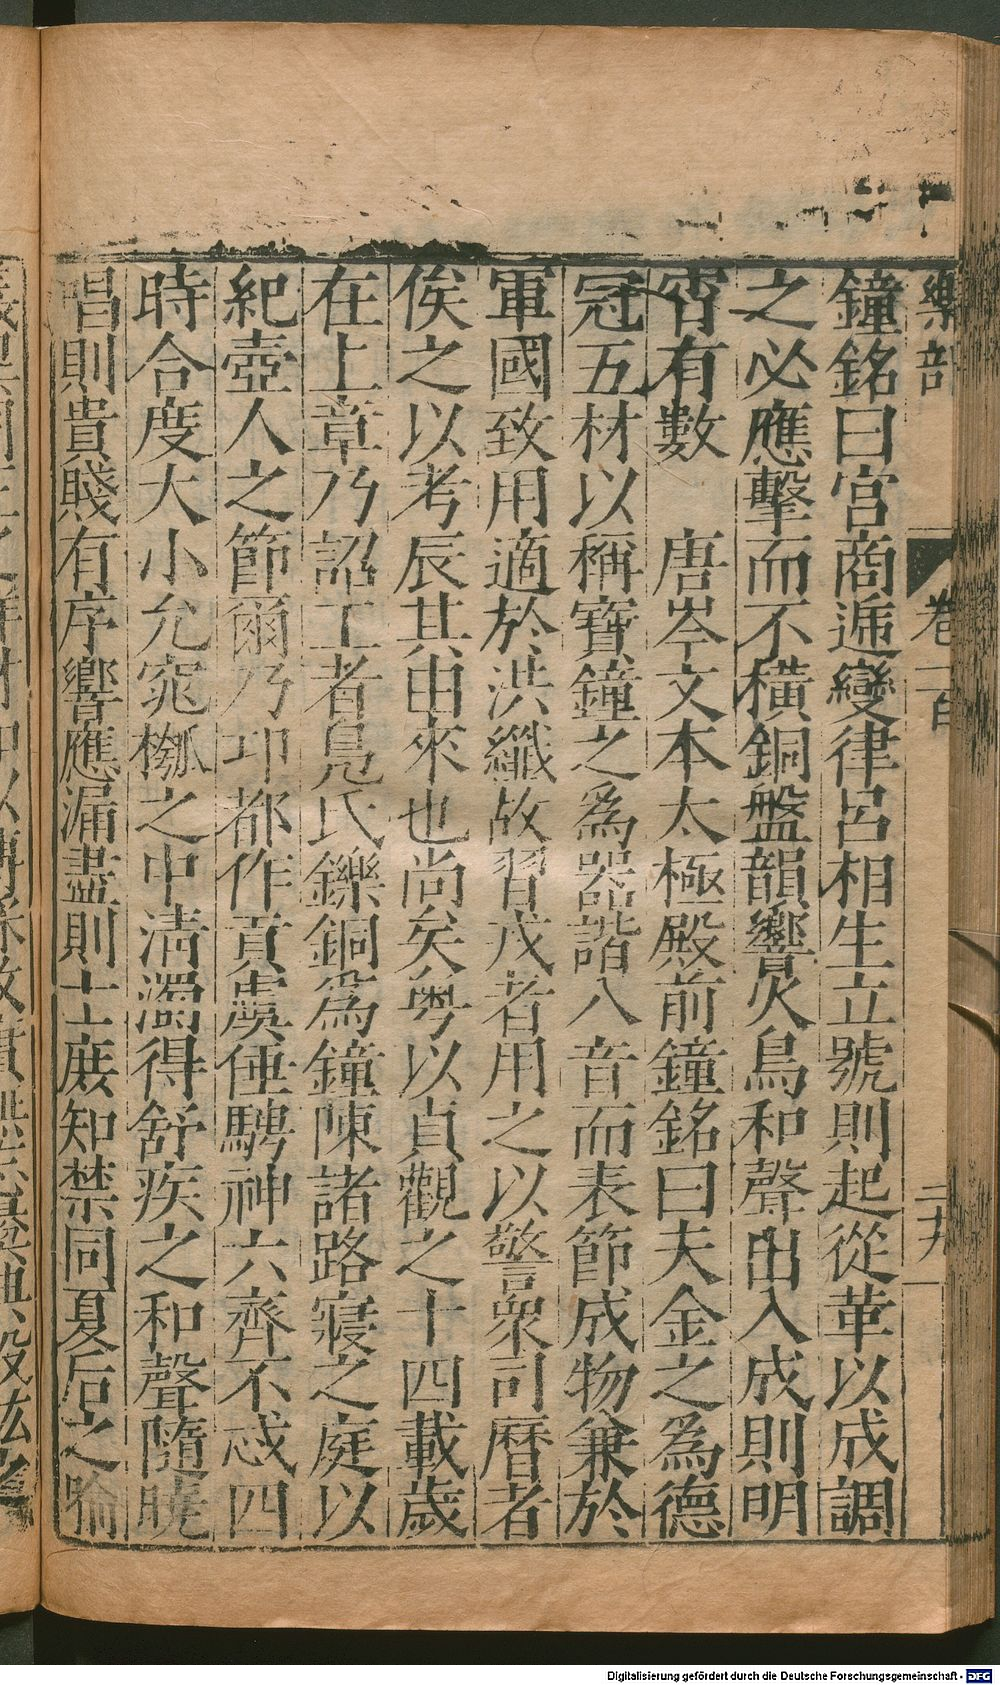 樂部
卷一百
二十九
鐘銘曰宮商遞變律呂相生立號則起從革以成調
之必應擊而不橫銅盤韻響火鳥和聲出入成則明
宵有數　唐岑文本太極殿前鐘銘曰夫金之爲德
冠五材以稱寶鐘之爲器諧八音而表節成物兼於
軍國致用適於洪纖故習戎者用之以警衆司曆者
俟之以考辰其由來也尚矣粤以貞觀之十四載歲
在上章乃詔工者鳧氏鑠銅爲鐘陳諸路寢之庭以
紀壺人之節爾乃邛都作貢虞倕騁神六齊不忒四
時合度大小允窕槬之中清濁得舒疾之和聲隨曉
唱則貴賤有序響應漏盡則士庶知禁同夏后之
Digitalisierung gefördert durch die Deutsche Forschungsgemeinschaft - DFG